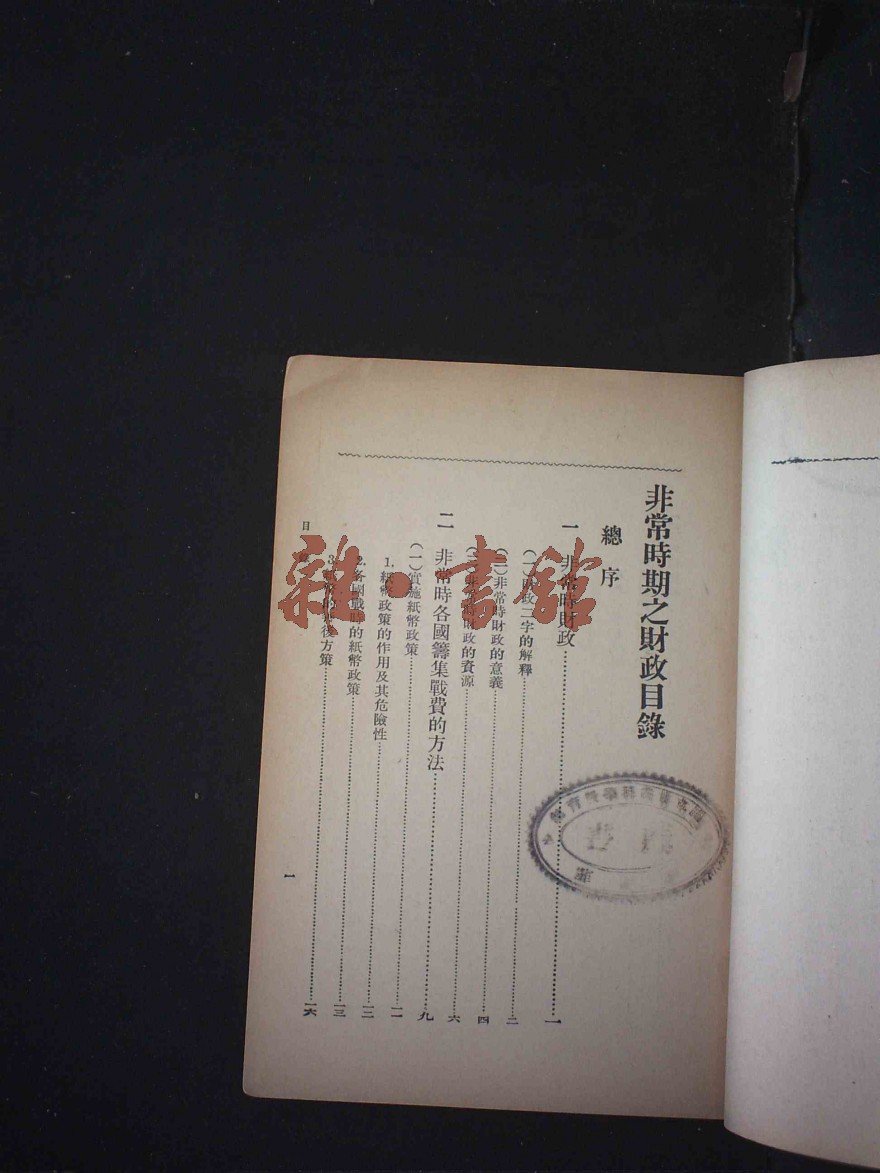 非常時期之財政目錄
總序
一 非常時財政……一
(一)財政二字的解釋……二
(二)非常時財政的意義……四
(三)非常時財政的資源……六
二 非常時各國籌集戰費的方法……九
(一)實施紙幣政策……一一
1.紙幣政策的作用及其危險性……一二
2.各國戰時的紙幣政策……一三
3.後方策……一六
目
一
雜·書館